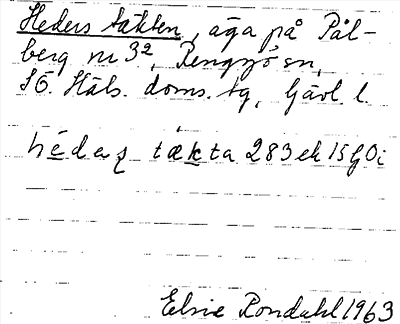 Heders täkten, äga på Pål-
berg nr 3², Rengsjö sn,
SÖ. Häls. doms. tg, Gävl. l.
hédaʂ tækta 283 ek 15 GOi
Elsie Rondahl 1963